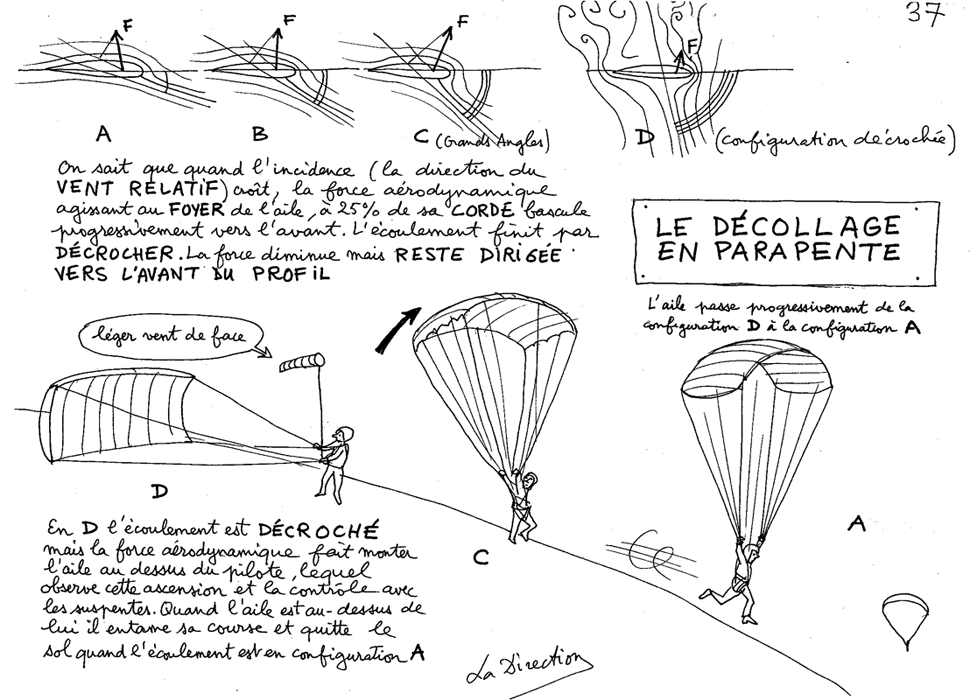 37
F
F
F
F
A
B
C (Grands Angles)
D
(configuration décrochée)
On sait que quand l'incidence (la direction du
VENT RELATIF) croît, la force aérodynamique
agissant au FOYER de l'aile, à 25% de sa CORDE bascule
progressivement vers l'avant. L'écoulement finit par
DÉCROCHER. La force diminue mais RESTE DIRIGÉE
VERS L'AVANT DU PROFIL
LE DÉCOLLAGE
EN PARAPENTE
L'aile passe progressivement de la
configuration D à la configuration A
léger vent de face
D
C
A
En D l'écoulement est DÉCROCHÉ
mais la force aérodynamique fait monter
l'aile au dessus du pilote, lequel
observe cette ascension et la contrôle avec
les suspentes. Quand l'aile est au-dessus de
lui il entame sa course et quitte le
sol quand l'écoulement est en configuration A
La Direction